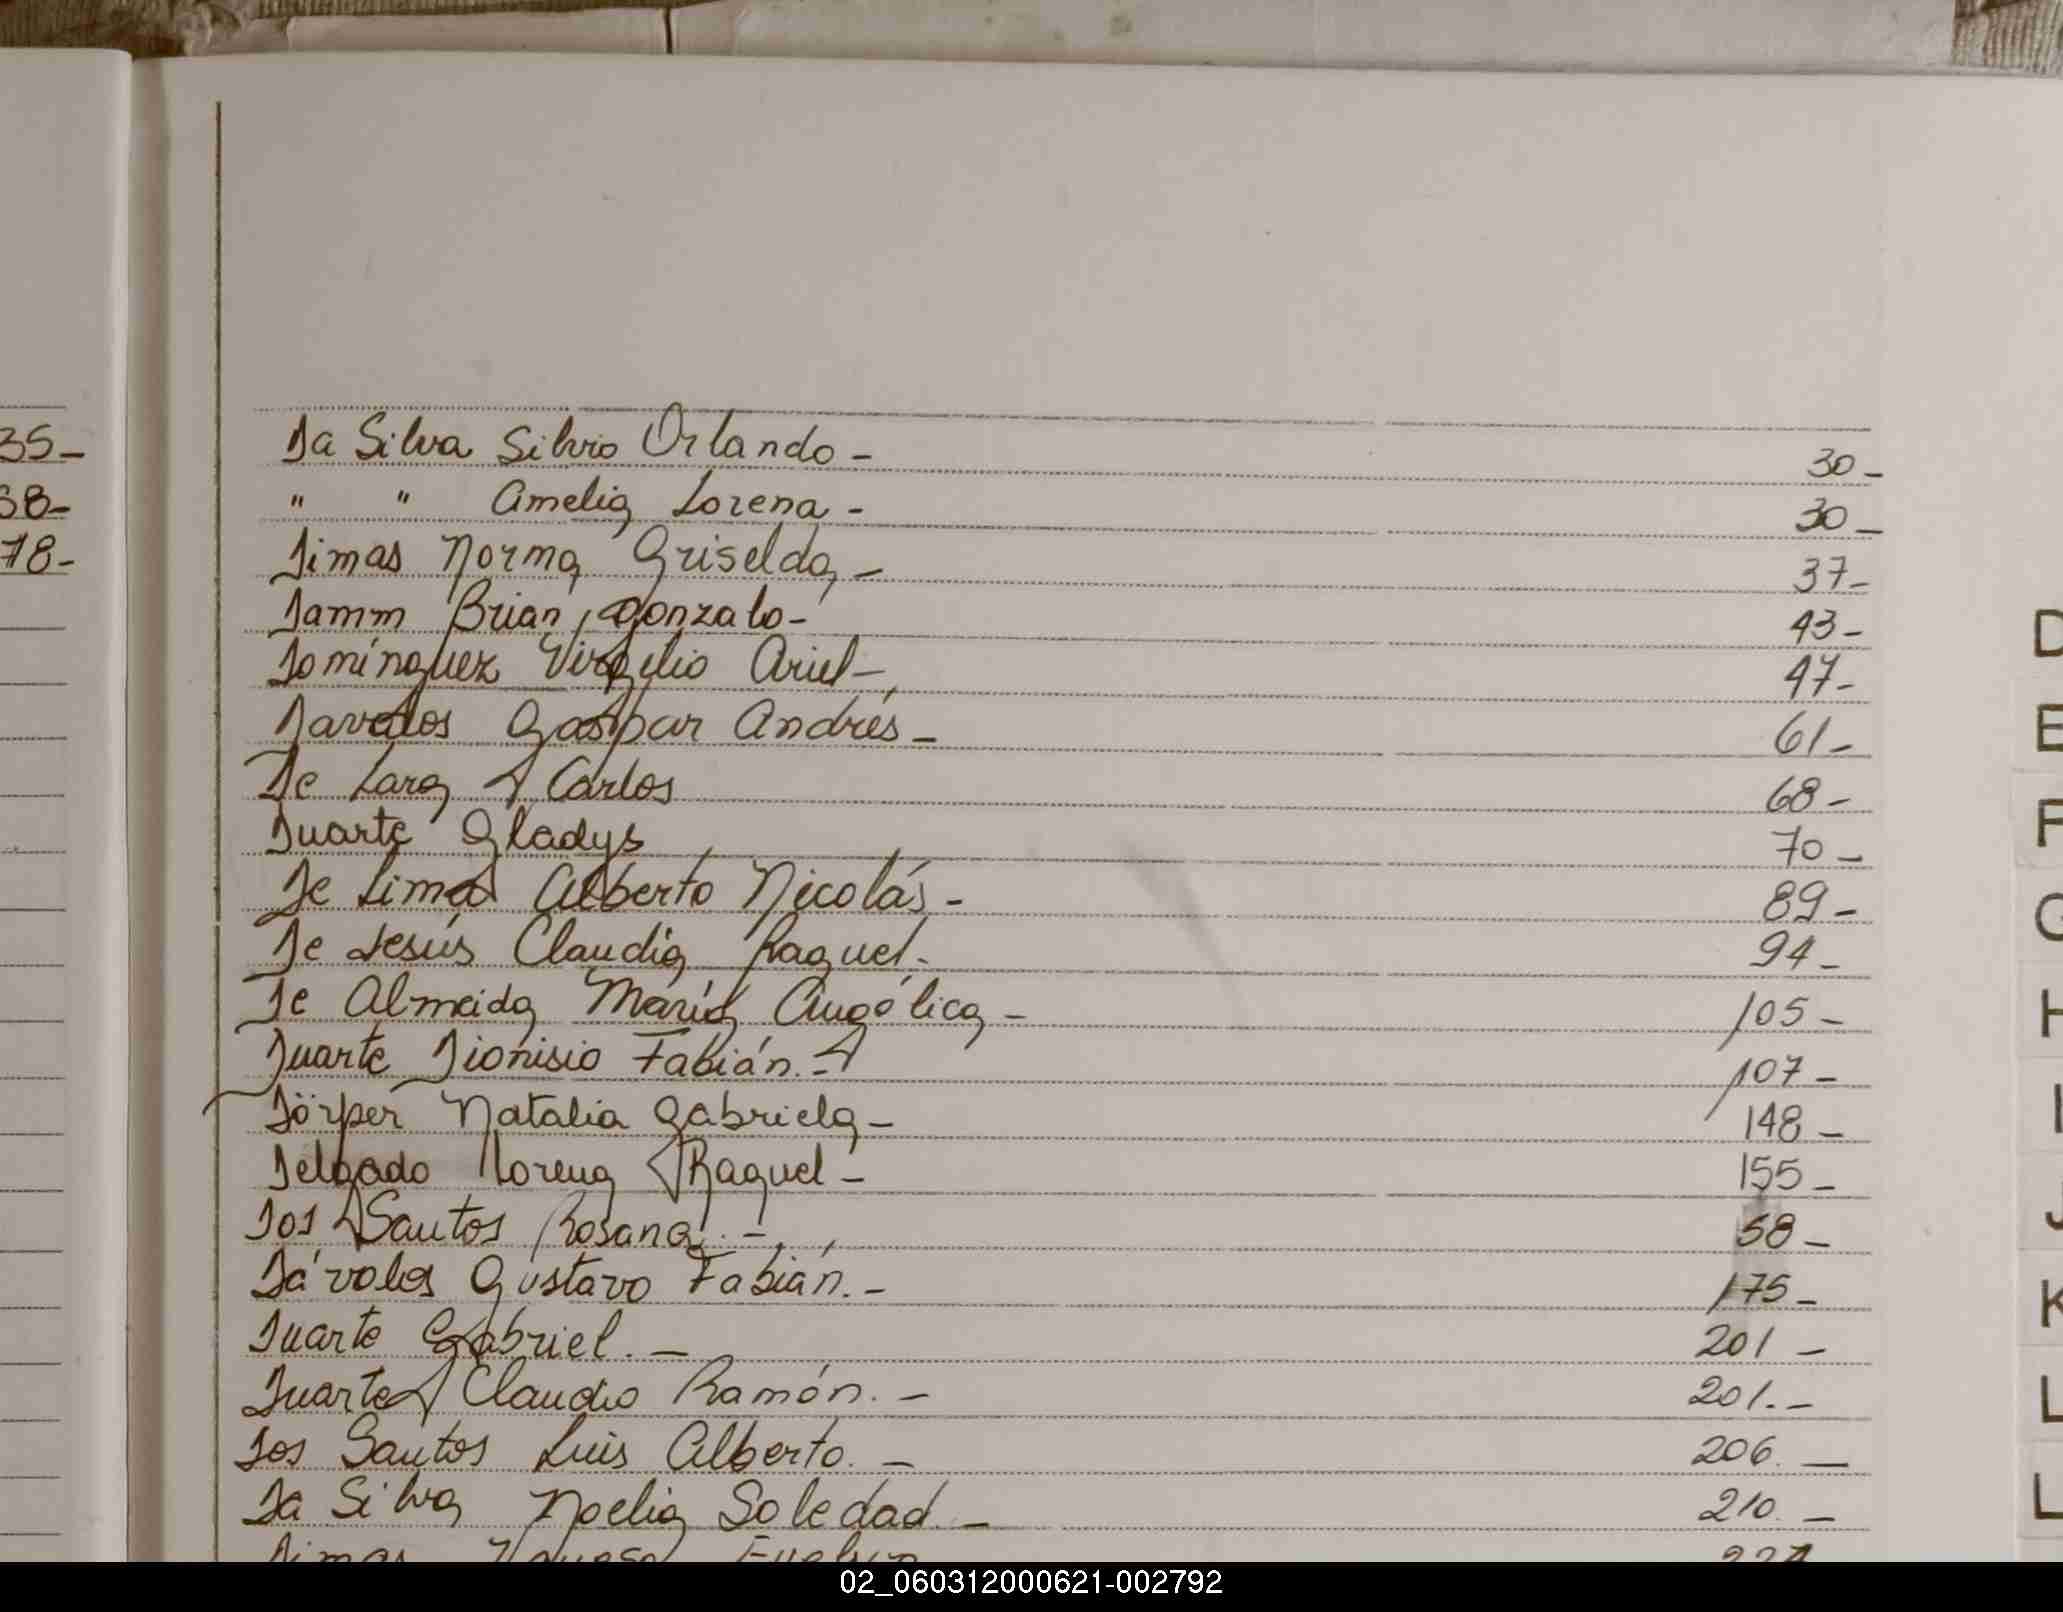 35-
38-
78-
Da Silva Silvio Orlando - 30-
" " Amelia Lorena - 30-
Dimas Norma Griselda, - 37-
Damm Brian Gonzalo - 43-
Domínguez Virgilio Ariel - 47-
Davalos Gaspar Andrés - 61-
De Lara Carlos 68-
Duarte Gladys 70-
De Lima Alberto Nicolás - 89-
De Jesús Claudia Raquel. 94-
De Almeida María Angélica - 105-
Duarte Dionisio Fabián. - 107-
Dörper Natalia Gabriela - 148-
Delgado Lorena Raquel - 155-
Dos Santos Rosana. - 58-
Dávolos Gustavo Fabián. - 175-
Duarte Gabriel. - 201-
Duarte Claudio Ramón. - 201.-
Dos Santos Luis Alberto. - 206.-
Da Silva Noelia Soledad. - 210.-
Dimas Evelyn
D
E
F
G
H
I
J
K
L
L
02_060312000621-002792